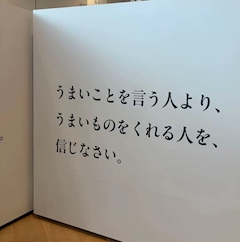 うまいことを言う人より、
うまいものをくれる人を、
信じなさい。